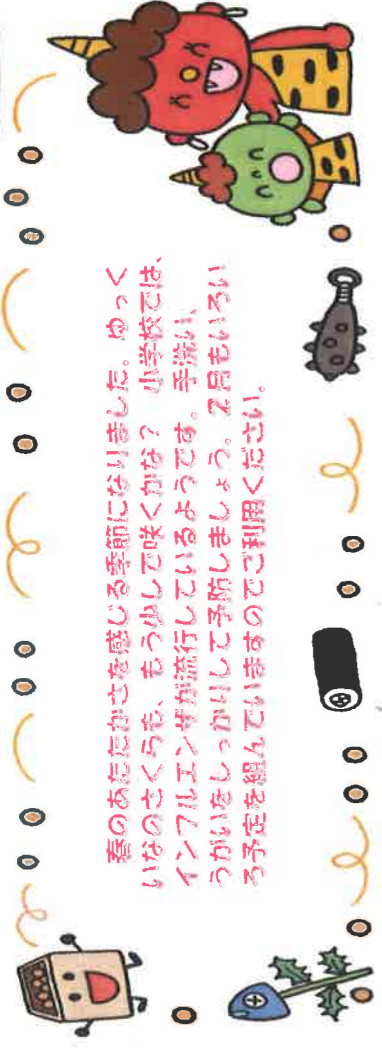 春のあたたかさを感じる季節になりました。ゆっく
いなのさくらも、もう少しで咲くかな？　小学校では、
インフルエンザが流行しているようです。手洗い、
うがいをしっかりして予防しましょう。2月もいろい
ろ予定を組んでいますのでご利用ください。